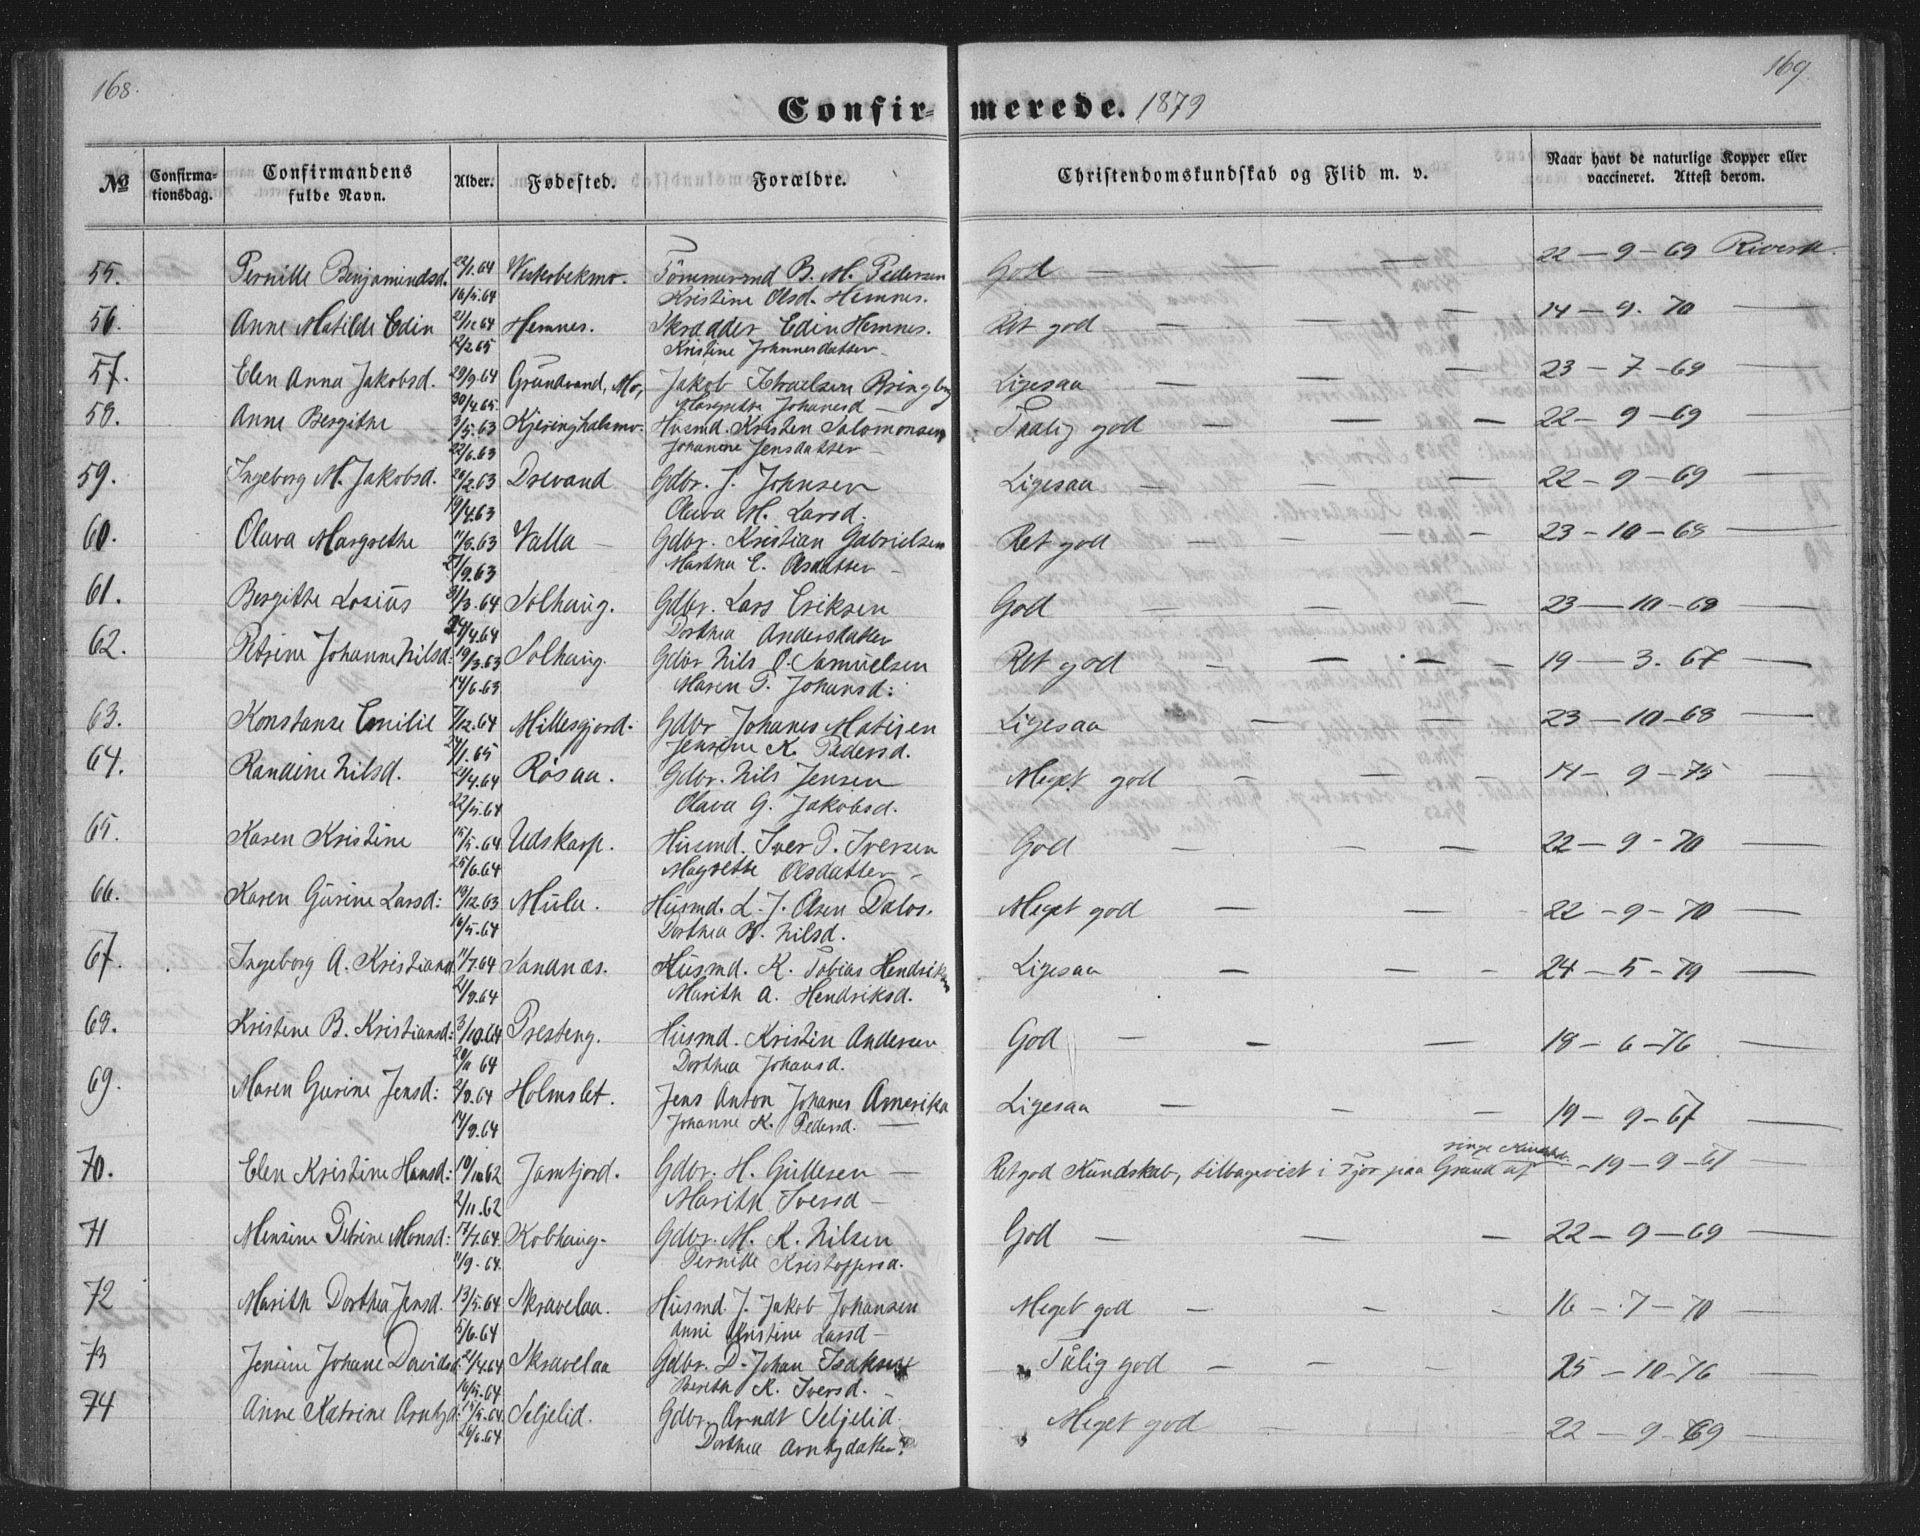 168.
169.
Confirmerede. 1879
No
Confirmationsdag.
Confirmandens fulde Navn.
Alder.
Fødested.
Forældre.
Christendomskundskab og Flid m. v.
Naar havt de naturlige Kopper eller vaccineret. Attest derom.
55. Pernille Benjamindsd. 22/1.64 Tømmermd B. M. Pedersen God — 22 — 9 — 69
16/5.64 Kristine Olsd. Hemnes.
56. Anne Matilde Edin 21/12 64 Hemnes. Skrædder Edin Hemnes. Ret god — — — 14 — 9. 70 —
12/2 65 Kristine Johannesdatter
57. Elen Anna Jakobsd. 29/9.64 Grundvand, Mo, Jakob Bringby Ligesaa — — — 23 — 7 — 69 —
30/4.65. Margrethe Johanesd —
58. Anne Bergithe 3/5.63 Kjeringhalsmo. Husmd. Kristen Salomonsen Taalig god — — — 22 — 9 — 69 —
22/6.63 Johanene Jensdatter —
59. Ingeborg M. Jakobsd. 26/2.63 Drevand Gdbr. J. Johnsen Ligesaa — — — 22 — 9 — 69 —
19/4.63 Olava M. Larsd.
60. Olava Margrethe 11/8.63 Valla — Gdbr. Kristian Gabrielsen Ret god — — — 23 — 10 — 68 —
27/9.63 Martha E. Olsdatter —
61. Bergitte Losius 31/3.64 Solhaug. Gdbr. Lars Eriksen God — — — 23 — 10 — 68 —
24/4.64 Dorthea Andersdatter
62. Petrine Johanne Nilsd: 19/3.63 Solhaug. Gdbr Nils O. Samuelsen Ret god — — — 19 — 3. 67 —
14/6.63 Maren P. Johansd:
63. Konstanse Emilie 7/12.64 Millesjord. Gdbr Johanes Matisen Ligesaa — — — 23 — 10 — 68 —
24/1.65 Jensine K. Pedersd.
64. Randine Nilsd. 21/4.64 Røsaa. Gdbr. Nils Jensen Meget god — — — 14 — 9 — 75 —
22/5.64 Olava G. Jakobsd.
65. Karen Kristine 15/5.64 Udskarp. Husmd. Iver P. Iversen God — — — 22 — 9 — 70 —
25/6.64 Magrethe Olsdatter —
66. Karen Gurine Larsd: 19/12.63 Mula. Husmd. L. J. Olsen Dalos. Meget god — — — 22 — 9 — 70 —
16/5.64 Dorthea B. Nilsd.
67. Ingeborg A. Kristiansd 11/7.64 Sandnæs. Husmd. K. Tobias Hendriksen Ligesaa — — — 24 — 5 — 79 —
21/9.64 Marith A. Hendriksd.
68. Kristine B. Kristiansd: 3/10.64 Presteng. Husmd. Kristen Andersen God — — — 18 — 6 — 76 —
20/11 64 Dorthea Johansd.
69. Maren Gurine Jensd: 2/8.64 Holmslet. Jens Anton Johanes Amerika Ligesaa — — — 19 — 9 — 67 —
14/9.64 Johanne K. Pedersd. —
70. Elen Kristine Hansd: 19/10 62 Jamtjord. Gdbr. H. Gullesen — Ret god Kundskab, tilbagevist i Fjor paa Grund af ringe Kundsk. — 19 — 9 — 67 —
2/11.62 Marith Iversd —
71 Mensine Petrine Monsd: 17/7.64. Kobhaug. Gdbr. M. K. Nilsen God — — — 22 — 9 — 69 —
11/9.64. Pernille Kristoffersd.
72 Marith Dorthea Jensd. 13/5.64 Skravelaa. Husmd. J. Jakob Johansen Meget god — — — 16 — 7 — 70 —
5/6.64 Anne Kristine Larsd —
73 Jensine Johane Davidsd. 2/4.64 Skravelaa Gdbr. D. Johan Isaksen Tålig god — — — 25 — 10 — 76 —
16/5.64 Berith K. Iversd. —
74 Anne Katrine Arntzd: 15/5.64. Seljelid. Gdbr. Arndt Seljelid. Meget god — — 22 — 9 — 69 —
26/6.64 Dorthea Arntzdatter